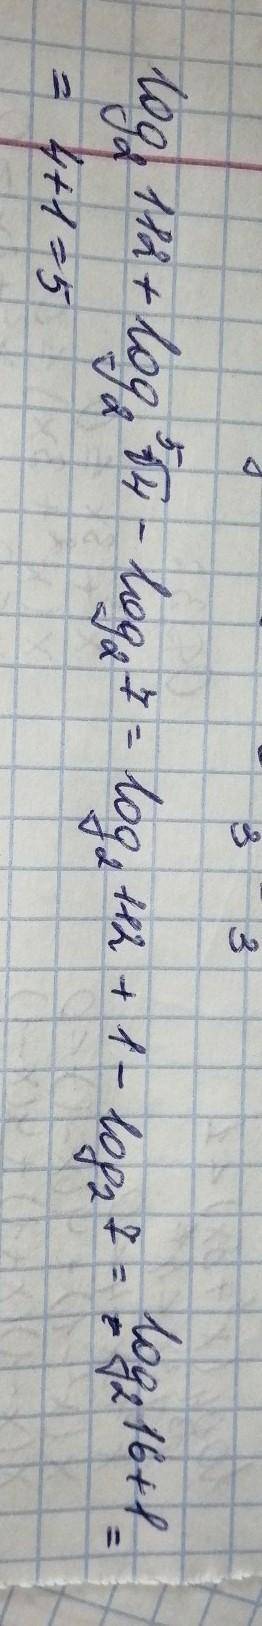 log₂ 112 + log₂ ⁵√4 - log₂ 7 = log₂ 112 + 1 - log₂ 7 = log₂ 16 + 1 =
= 4 + 1 = 5
3 3